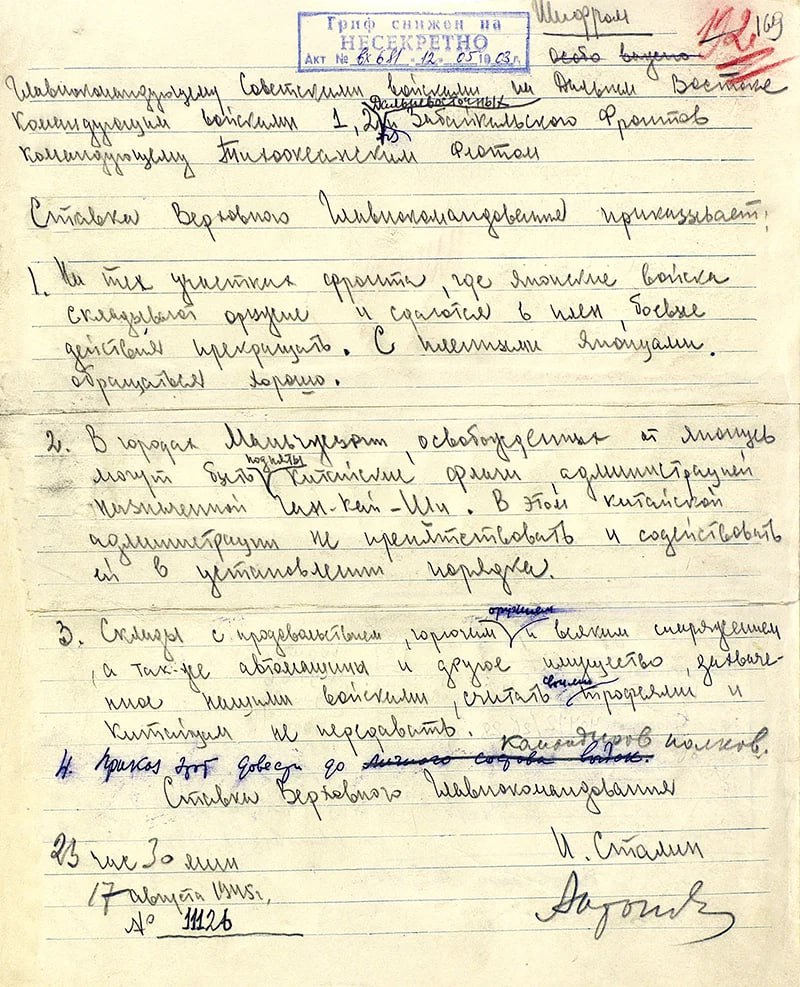 Гриф снижен на
НЕСЕКРЕТНО
Акт № вх681 . 12 . 05 1903г.
Шифром
Особо важно
192
169
Главнокомандующему Советскими войсками на Дальнем Востоке
Дальневосточных
Командующим войсками 1, 2 и Забайкальского Фронтов
командующему Тихоокеанским Флотом
Ставка Верховного Главнокомандования приказывает:
1. На тех участках фронта, где японские войска
складывают оружие и сдаются в плен, боевые
действия прекращать. С пленными японцами
обращаться хорошо.
2. В городах Маньчжурии, освобожденных от японцев
подняты
могут быть китайские флаги администрацией
назначенной Чан-Кай-Ши. В этом китайской
администрации не препятствовать и содействовать
ей в установлении порядка.
оружием
3. Склады с продовольствием, горючим и всяким снаряжением
, а так-же автомашины и другое имущество, захвачен-
своими
ное нашими войсками, считать трофеями и
китайцам не передавать.
командиров полков.
4. Приказ этот довести до личного состава войск.
Ставка Верховного Главнокомандования
23 час 30 мин
И. Сталин
17 августа 1945г.
Антонов
№ 11126